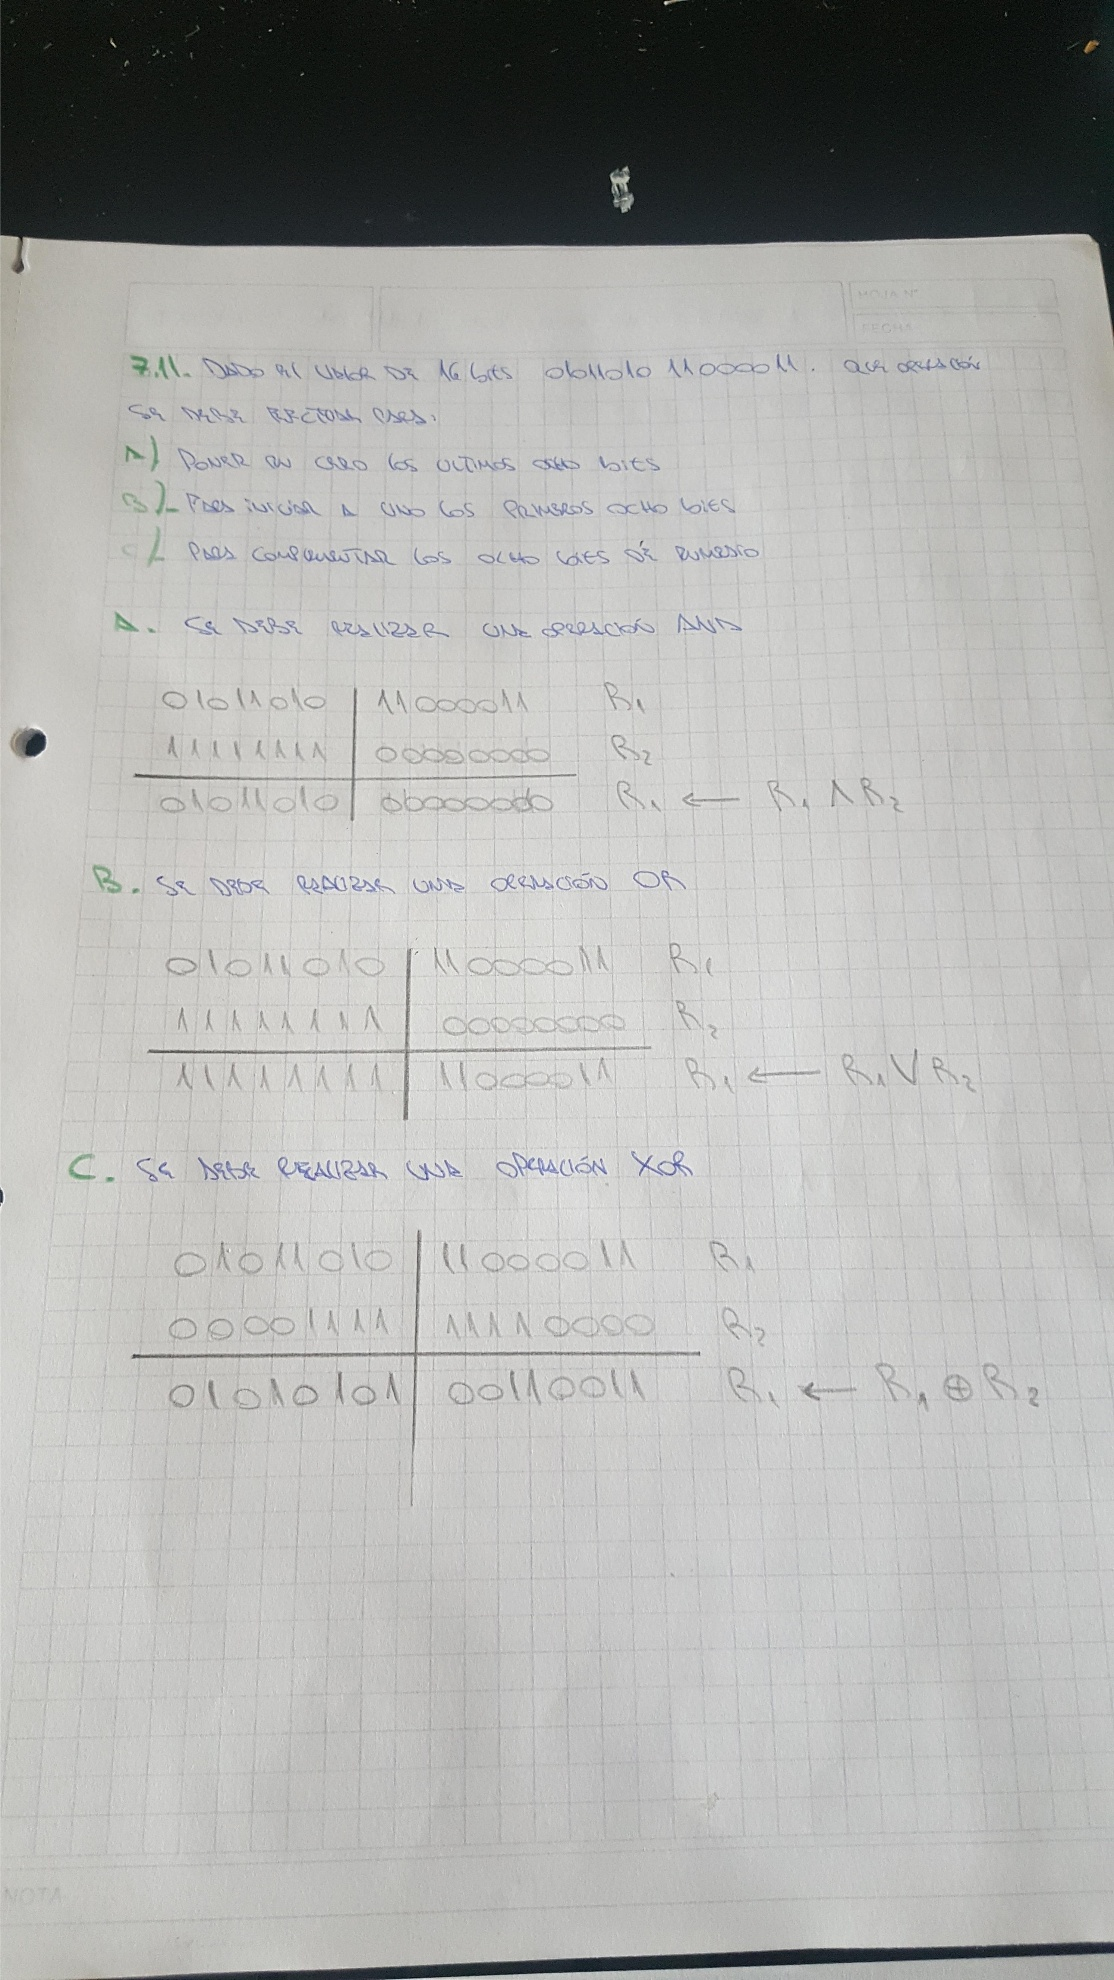 HOJA N°
FECHA
7.11. DADO EL VALOR DE 16 bits 01011010 11000011. QUE OPERACIÓN
SE DEBE EFECTUAR PARA:
A) PONER EN CERO LOS ULTIMOS OCHO bits
B)- PARA INICIAR A UNO LOS PRIMEROS OCHO bits
C)- PARA COMPLEMENTAR LOS OCHO bits DE ENMEDIO
A. SE DEBE REALIZAR UNA OPERACIÓN AND
01011010 | 11000011 R1
11111111 | 00000000 R2
01011010 | 00000000 R1 ← R1 ∧ R2
B. SE DEBE REALIZAR UNA OPERACIÓN OR
01011010 | 11000011 R1
11111111 | 00000000 R2
11111111 | 11000011 R1 ← R1 V R2
C. SE DEBE REALIZAR UNA OPERACIÓN XOR
01011010 | 11000011 R1
00001111 | 11110000 R2
01010101 | 00110011 R1 ← R1 ⊕ R2
NOTA